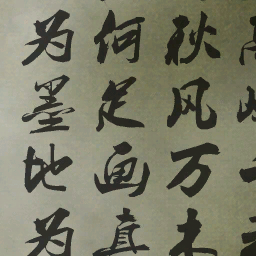 秋风万木
何足画真
为墨地为